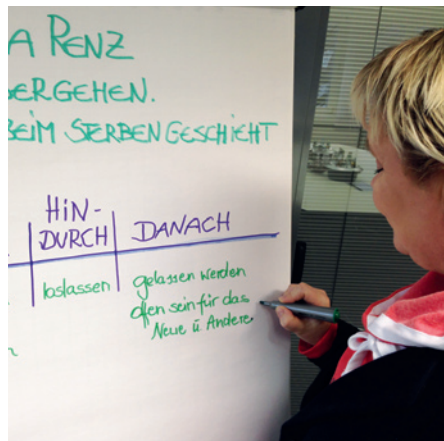 A RENZ
ERGEHEN.
BEIM STERBEN GESCHIEHT
HiN-
DURCH
DANACH
loslassen
gelassen werden
offen sein für das
Neue ü Andere.
n